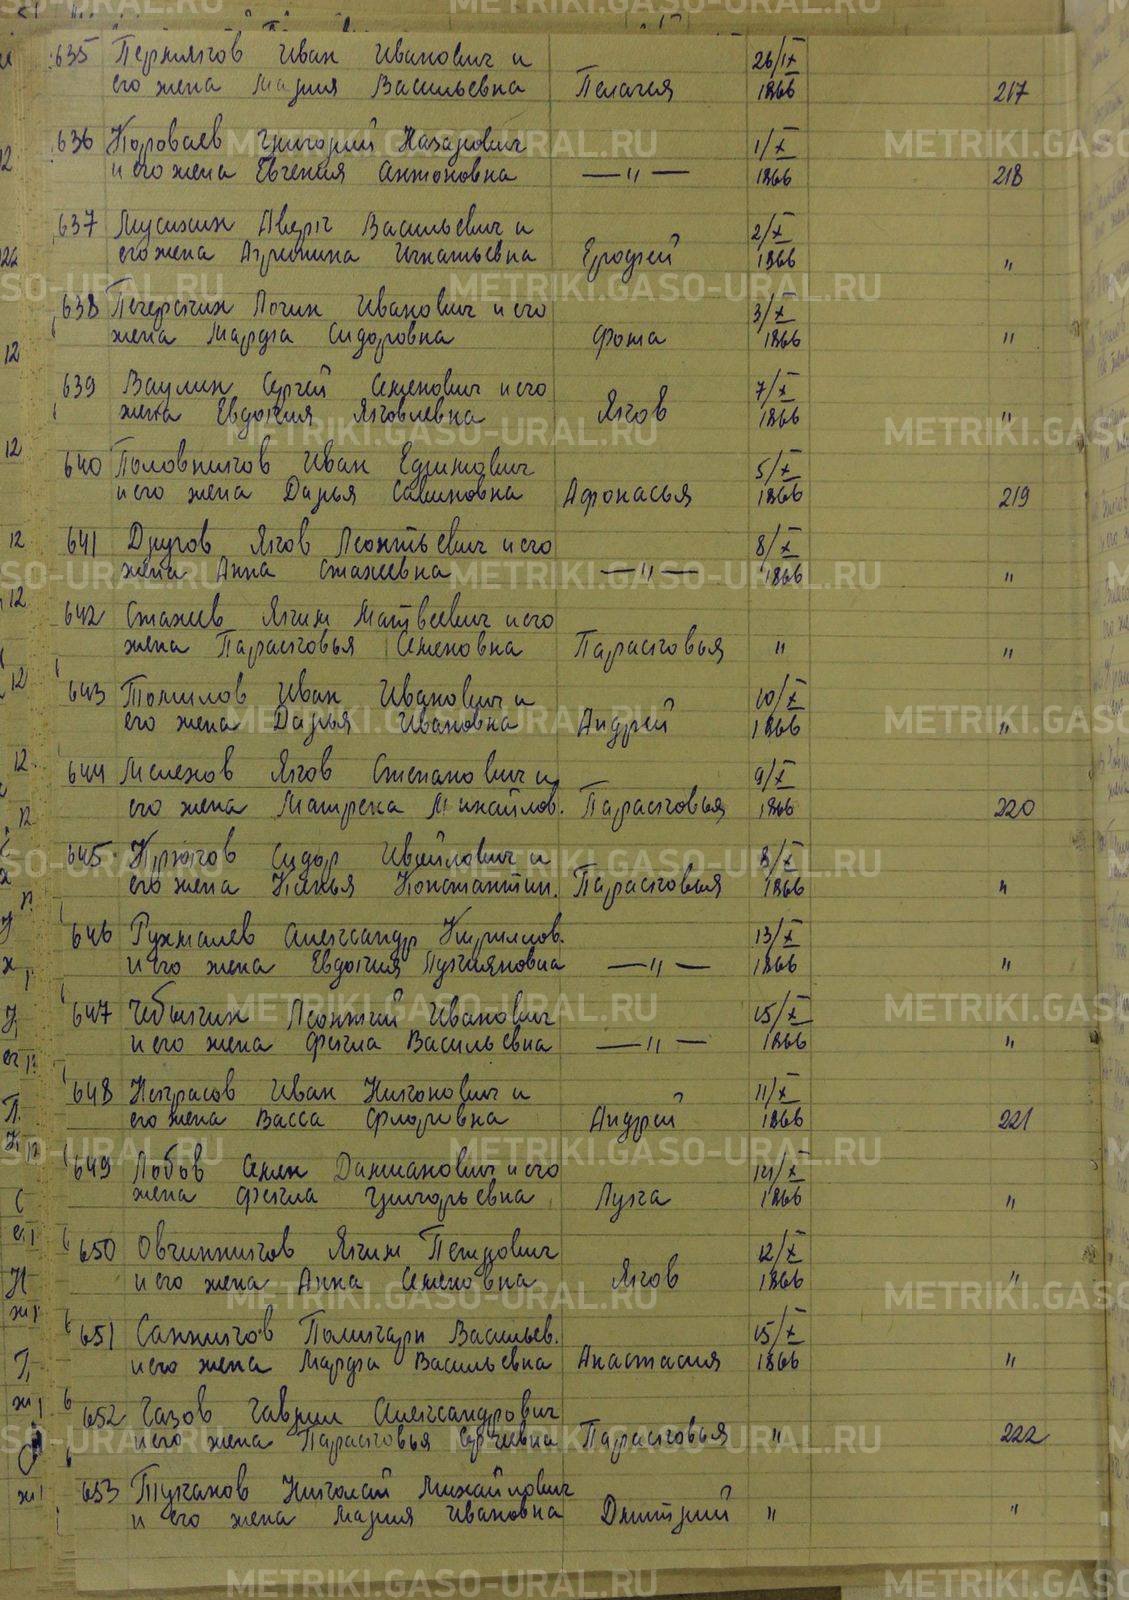 635 Пермяков Иван Иванович и 26/IX
его жена Мария Васильевна Пелагея 1866 217
636 Короваев Григорий Назарович 1/X
и его жена Евгения Антоновна —"— 1866 218
637 Мусихин Аверк Васильевич и 2/X
его жена Агрипина Игнатьевна Ерофей 1866 "
638 Печеркин Логин Иванович и его 3/X
жена Марфа Сидоровна Фома 1866 "
639 Ваулин Сергей Семенович и его 7/X
жена Евдокия Яковлевна Яков 1866 "
640 Половников Иван Ефимович 5/X
и его жена Дарья Савиновна Афонасья 1866 219
641 Другов Яков Леонтьевич и его 8/X
жена Анна Стахеевна —"— 1866 "
642 Стахеев Яким Матвеевич и его
жена Парасковья Семеновна Парасковья " "
643 Томилов Иван Иванович и 10/X
его жена Дарья Ивановна Андрей 1866 "
644 Мелехов Яков Степанович и 9/X
его жена Матрена Михайлов. Парасковья 1866 220
645 Крюков Сидор Ивойлович и 8/X
его жена Кснья Константин. Парасковья 1866 "
646 Рухмалев Александр Кириллов. 13/X
и его жена Евдокия Лукияновна —"— 1866 "
647 Чебыкин Леонтий Иванович 15/X
и его жена Фекла Васильевна —"— 1866 "
648 Некрасов Иван Никонович и 11/X
его жена Васса Флоривна Андрей 1866 221
649 Лобов Семен Дамианович и его 14/X
жена Фекла Григорьевна Лука 1866 "
650 Овчинников Яким Петрович 12/X
и его жена Анна Семеновна Яков 1866 "
651 Санников Поликарп Васильев. 15/X
и его жена Марфа Васильевна Анастасия 1866 "
652 Чазов Гаврил Александрович
и его жена Парасковья Сергеевна Парасковья " 222
653 Туканов Николай Михайлович
и его жена Мария Ивановна Дмитрий " "
METRIKI.GASO-URAL.RU